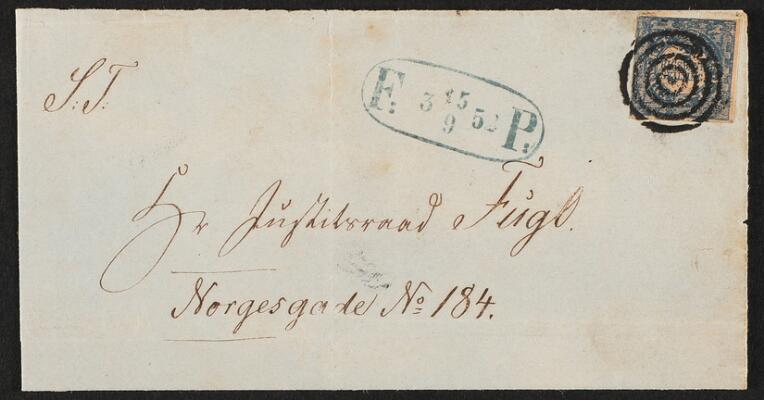 S: T:
F: 3 15/9 52 P.
Hr Justitsraad Fugl.
Norgesgade No 184.